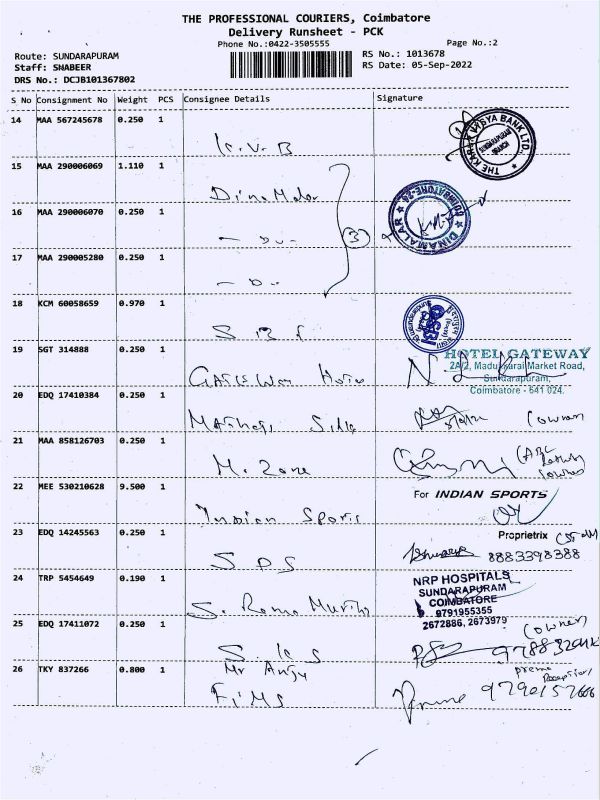 THE PROFESSIONAL COURIERS, Coimbatore
Delivery Runsheet - PCK
Phone No.:0422-3505555 Page No.:2
Route: SUNDARAPURAM RS No.: 1013678
Staff: SHABEER RS Date: 05-Sep-2022
DRS No.: DCJB101367802
S No Consignment No Weight PCS Consignee Details Signature
14 MAA 567245678 0.250 1
K.V.B
15 MAA 290006069 1.110 1
Dina Malar
16 MAA 290006070 0.250 1
3
17 MAA 290005280 0.250 1
DINAMALAR
18 KCM 60058659 0.970 1
19 SGT 314888 0.250 1
HOTEL GATEWAY
2A/2, Madukkarai Market Road,
Sundarapuram,
Coimbatore - 641 024.
20 EDQ 17410384 0.250 1
(owner)
21 MAA 858126703 0.250 1
M. Zone
22 MEE 530210628 9.500 1
For INDIAN SPORTS
Indian Sports
Proprietrix
23 EDQ 14245563 0.250 1
8883398388
SDS
24 TRP 5454649 0.190 1
NRP HOSPITALS
SUNDARAPURAM
COIMBATORE
9791955355
2672886, 2673979
S. Rama Murthy
25 EDQ 17411072 0.250 1
(owner)
26 TKY 837266 0.800 1
Mr Anju
FIMS